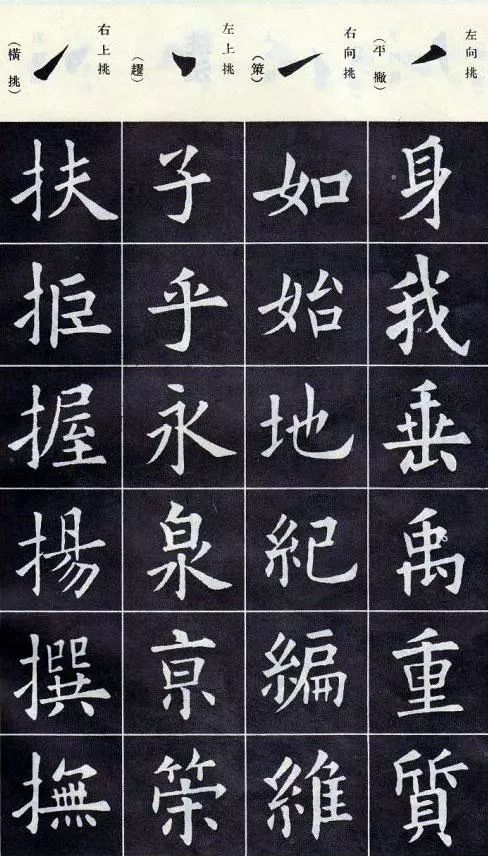 左向挑
(平撇)
身我垂禹重質
右向挑
(策)
如始地紀編維
左上挑
(趯)
子乎永泉亰
右上挑
(橫挑)
扶拒握揚撰撫